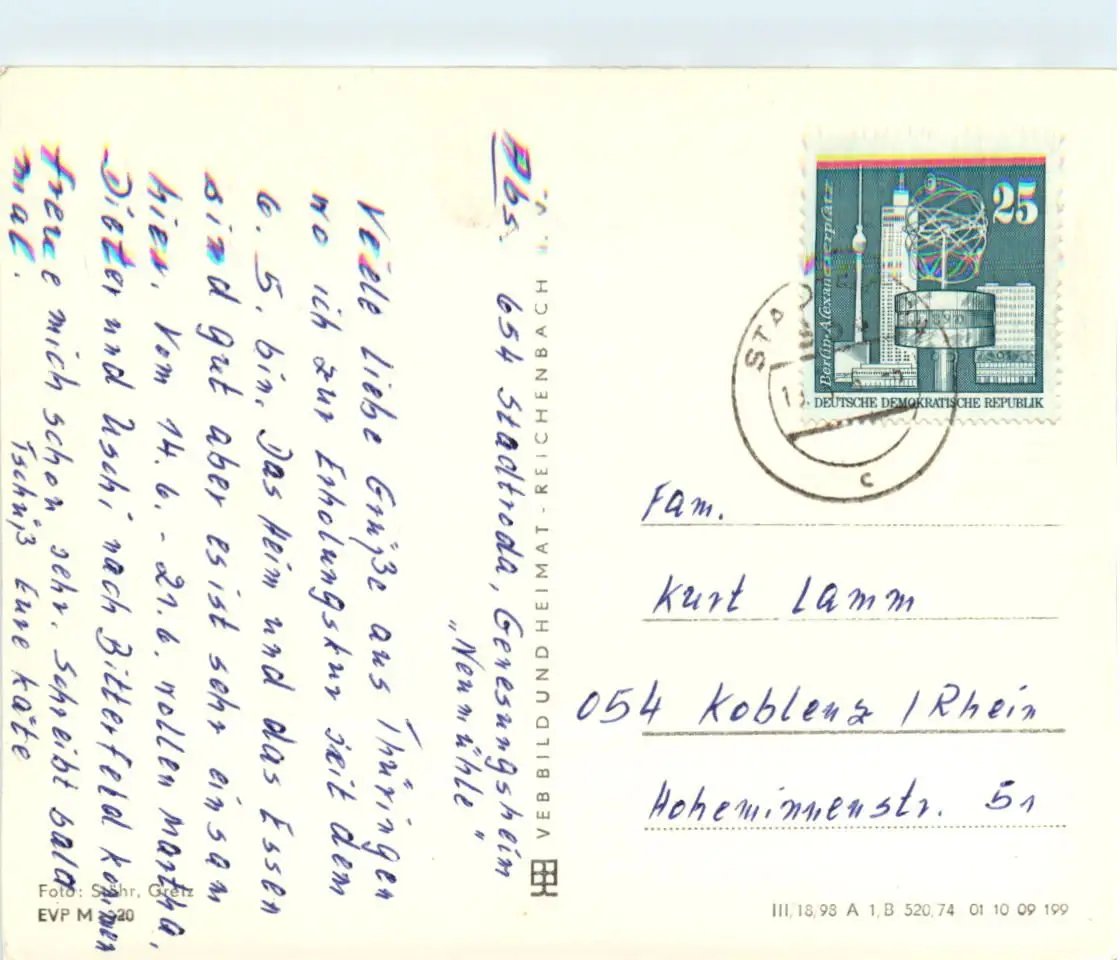 Abs. 654 Stadtroda, Genesungsheim
„Neumühle"
Viele liebe Grüße aus Thüringen
wo ich zur Erholungskur seit dem
6. 5. bin. Das Heim und das Essen
sind gut aber es ist sehr einsam
hier. Vom 14. 6. - 21. 6. wollen Martha,
Dieter und Uschi nach Bitterfeld kommen
freue mich schon sehr. Schreibt bald
mal.
Tschüß Eure Käte
VEB BILD UND HEIMAT - REICHENBACH i. V.
Berlin-Alexanderplatz
25
DEUTSCHE DEMOKRATISCHE REPUBLIK
c
Fam.
Kurt Lamm
054 Koblenz / Rhein
Foto: Stöhr, Greiz
EVP M 20
III/18/98 A 1, B 520/74 01 10 09 199